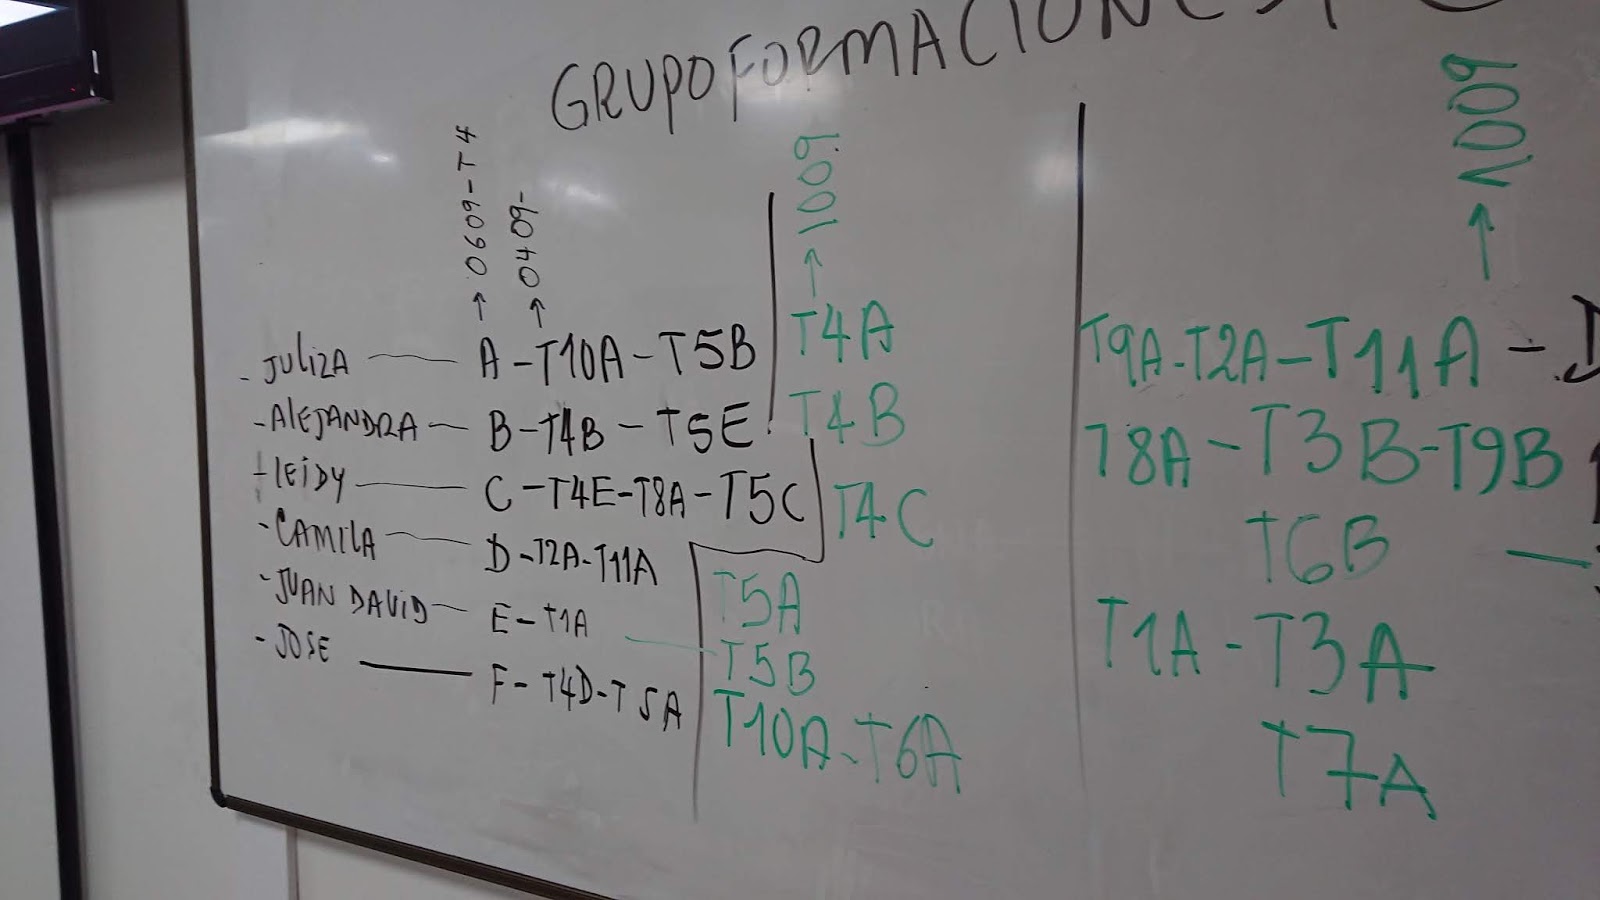 GRUPO FORMACION
→ 0609-T4
→ 0409-
→ 1009
→ 1009
- JULIZA — A - T10A - T5B
- ALEJANDRA — B - T4B - T5E
- LEIDY — C - T4E - T8A - T5C
- CAMILA — D - T2A - T11A
- JUAN DAVID — E - T1A
- JOSE — F - T4D - T5A
T4A
T4B
T4C
T5A
T5B
T10A - T6A
T9A - T2A - T11A - D
T8A - T3B - T9B
T6B —
T1A - T3A
T7A